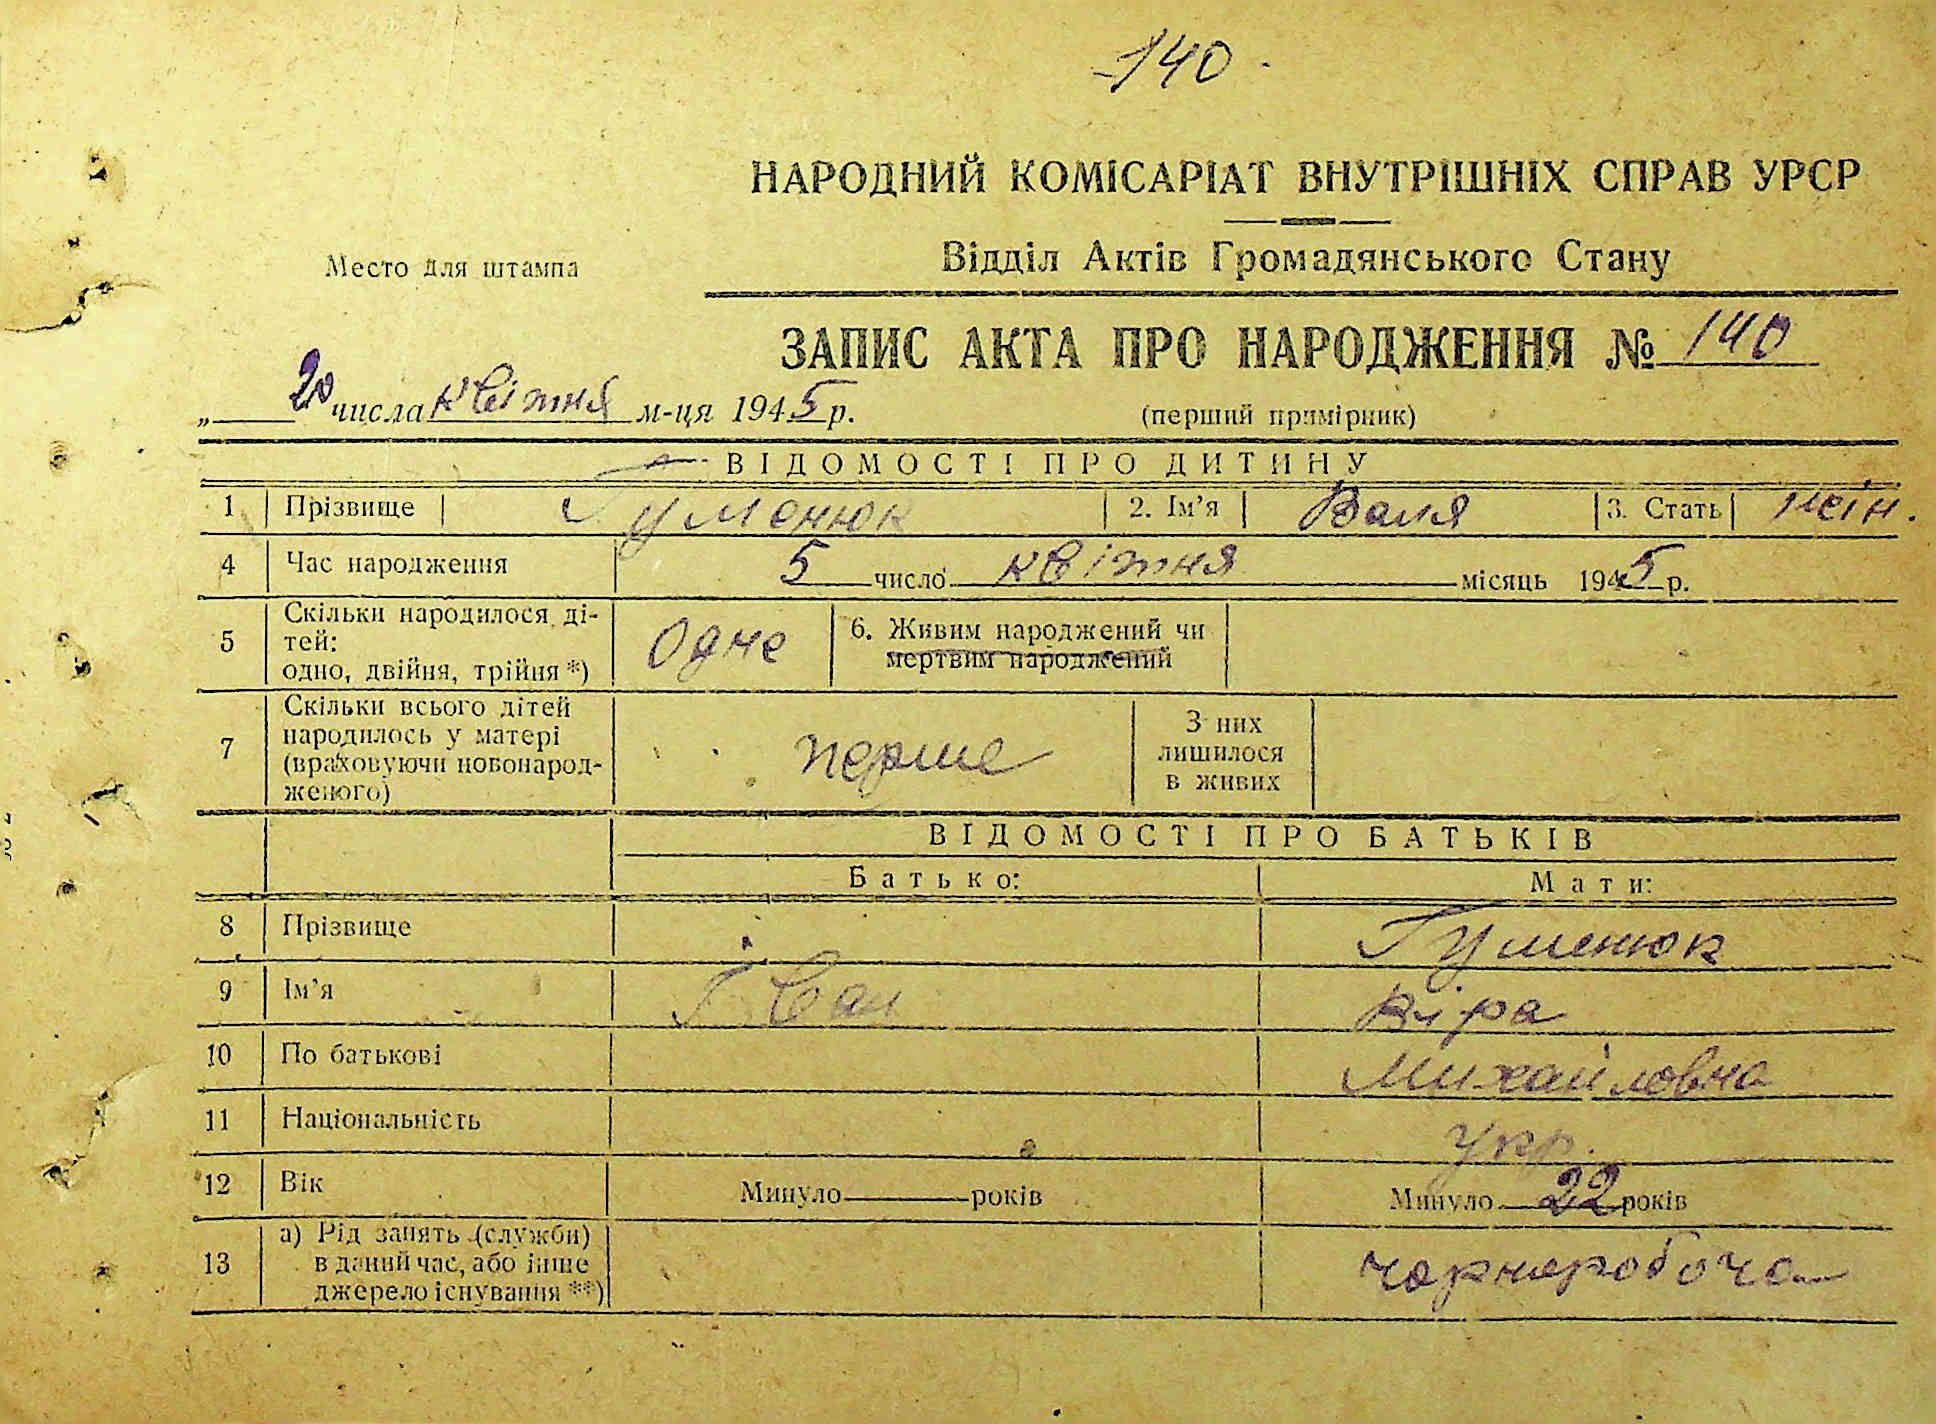 140.
НАРОДНИЙ КОМІСАРІАТ ВНУТРІШНІХ СПРАВ УРСР
Место для штампа
Відділ Актів Громадянського Стану
ЗАПИС АКТА ПРО НАРОДЖЕННЯ № 140
„ 20 числа квітня м-ця 1945 р.
(перший примірник)
ВІДОМОСТІ ПРО ДИТИНУ
1 Прізвище Гуменюк 2. Ім’я Валя 3. Стать жін.
4 Час народження 5 число квітня місяць 1945 р.
5 Скільки народилося ді-
тей:
одно, двійня, трійня *) Одне 6. Живим народжений чи
мертвим народжений
7 Скільки всього дітей
народилось у матері
(враховуючи новонарод-
женого) перше З них
лишилося
в живих
ВІДОМОСТІ ПРО БАТЬКІВ
Батько: Мати:
8 Прізвище Гуменюк
9 Ім’я Іван Віра
10 По батькові Михайловна
11 Національність укр.
12 Вік Минуло років Минуло 22 років
13 а) Рід занять (служби)
в даний час, або інше
джерело існування **) чорноробоча